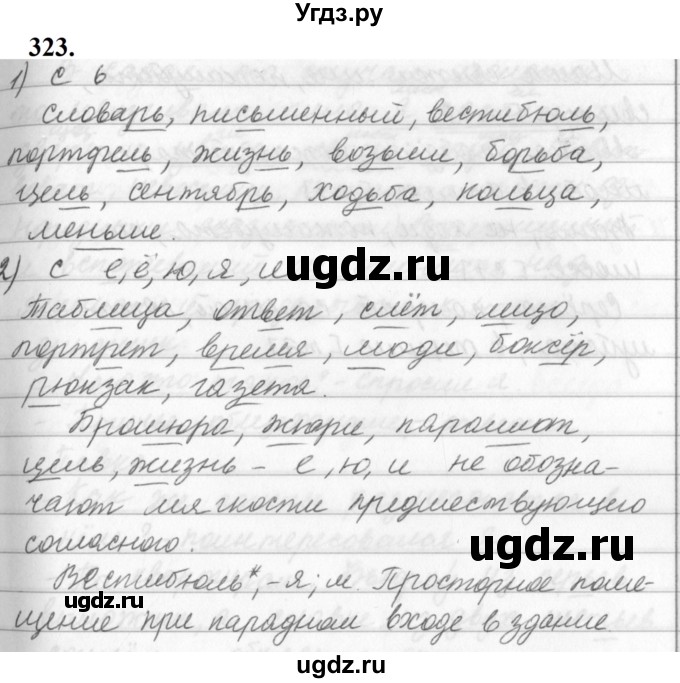 Угдз.ру
323.
1) с ь
словарь, письменный, вестибюль,
портфель, жизнь, возьми, борьба,
цель, сентябрь, ходьба, кольца,
меньше.
2) с е, ё, ю, я, и
ugdz.ru
Таблица, ответ, слёт, лицо,
портрет, время, люди, боксёр,
рюкзак, газета.
Брошюра, жюри, парашют,
цель, жизнь - е, ю, и не обозна-
чают мягкости предшествующего
ugdz.ru
согласного.
Вестибюль*, -я; м. Просторное поме-
щение при парадном входе в здание
ugdz.ru